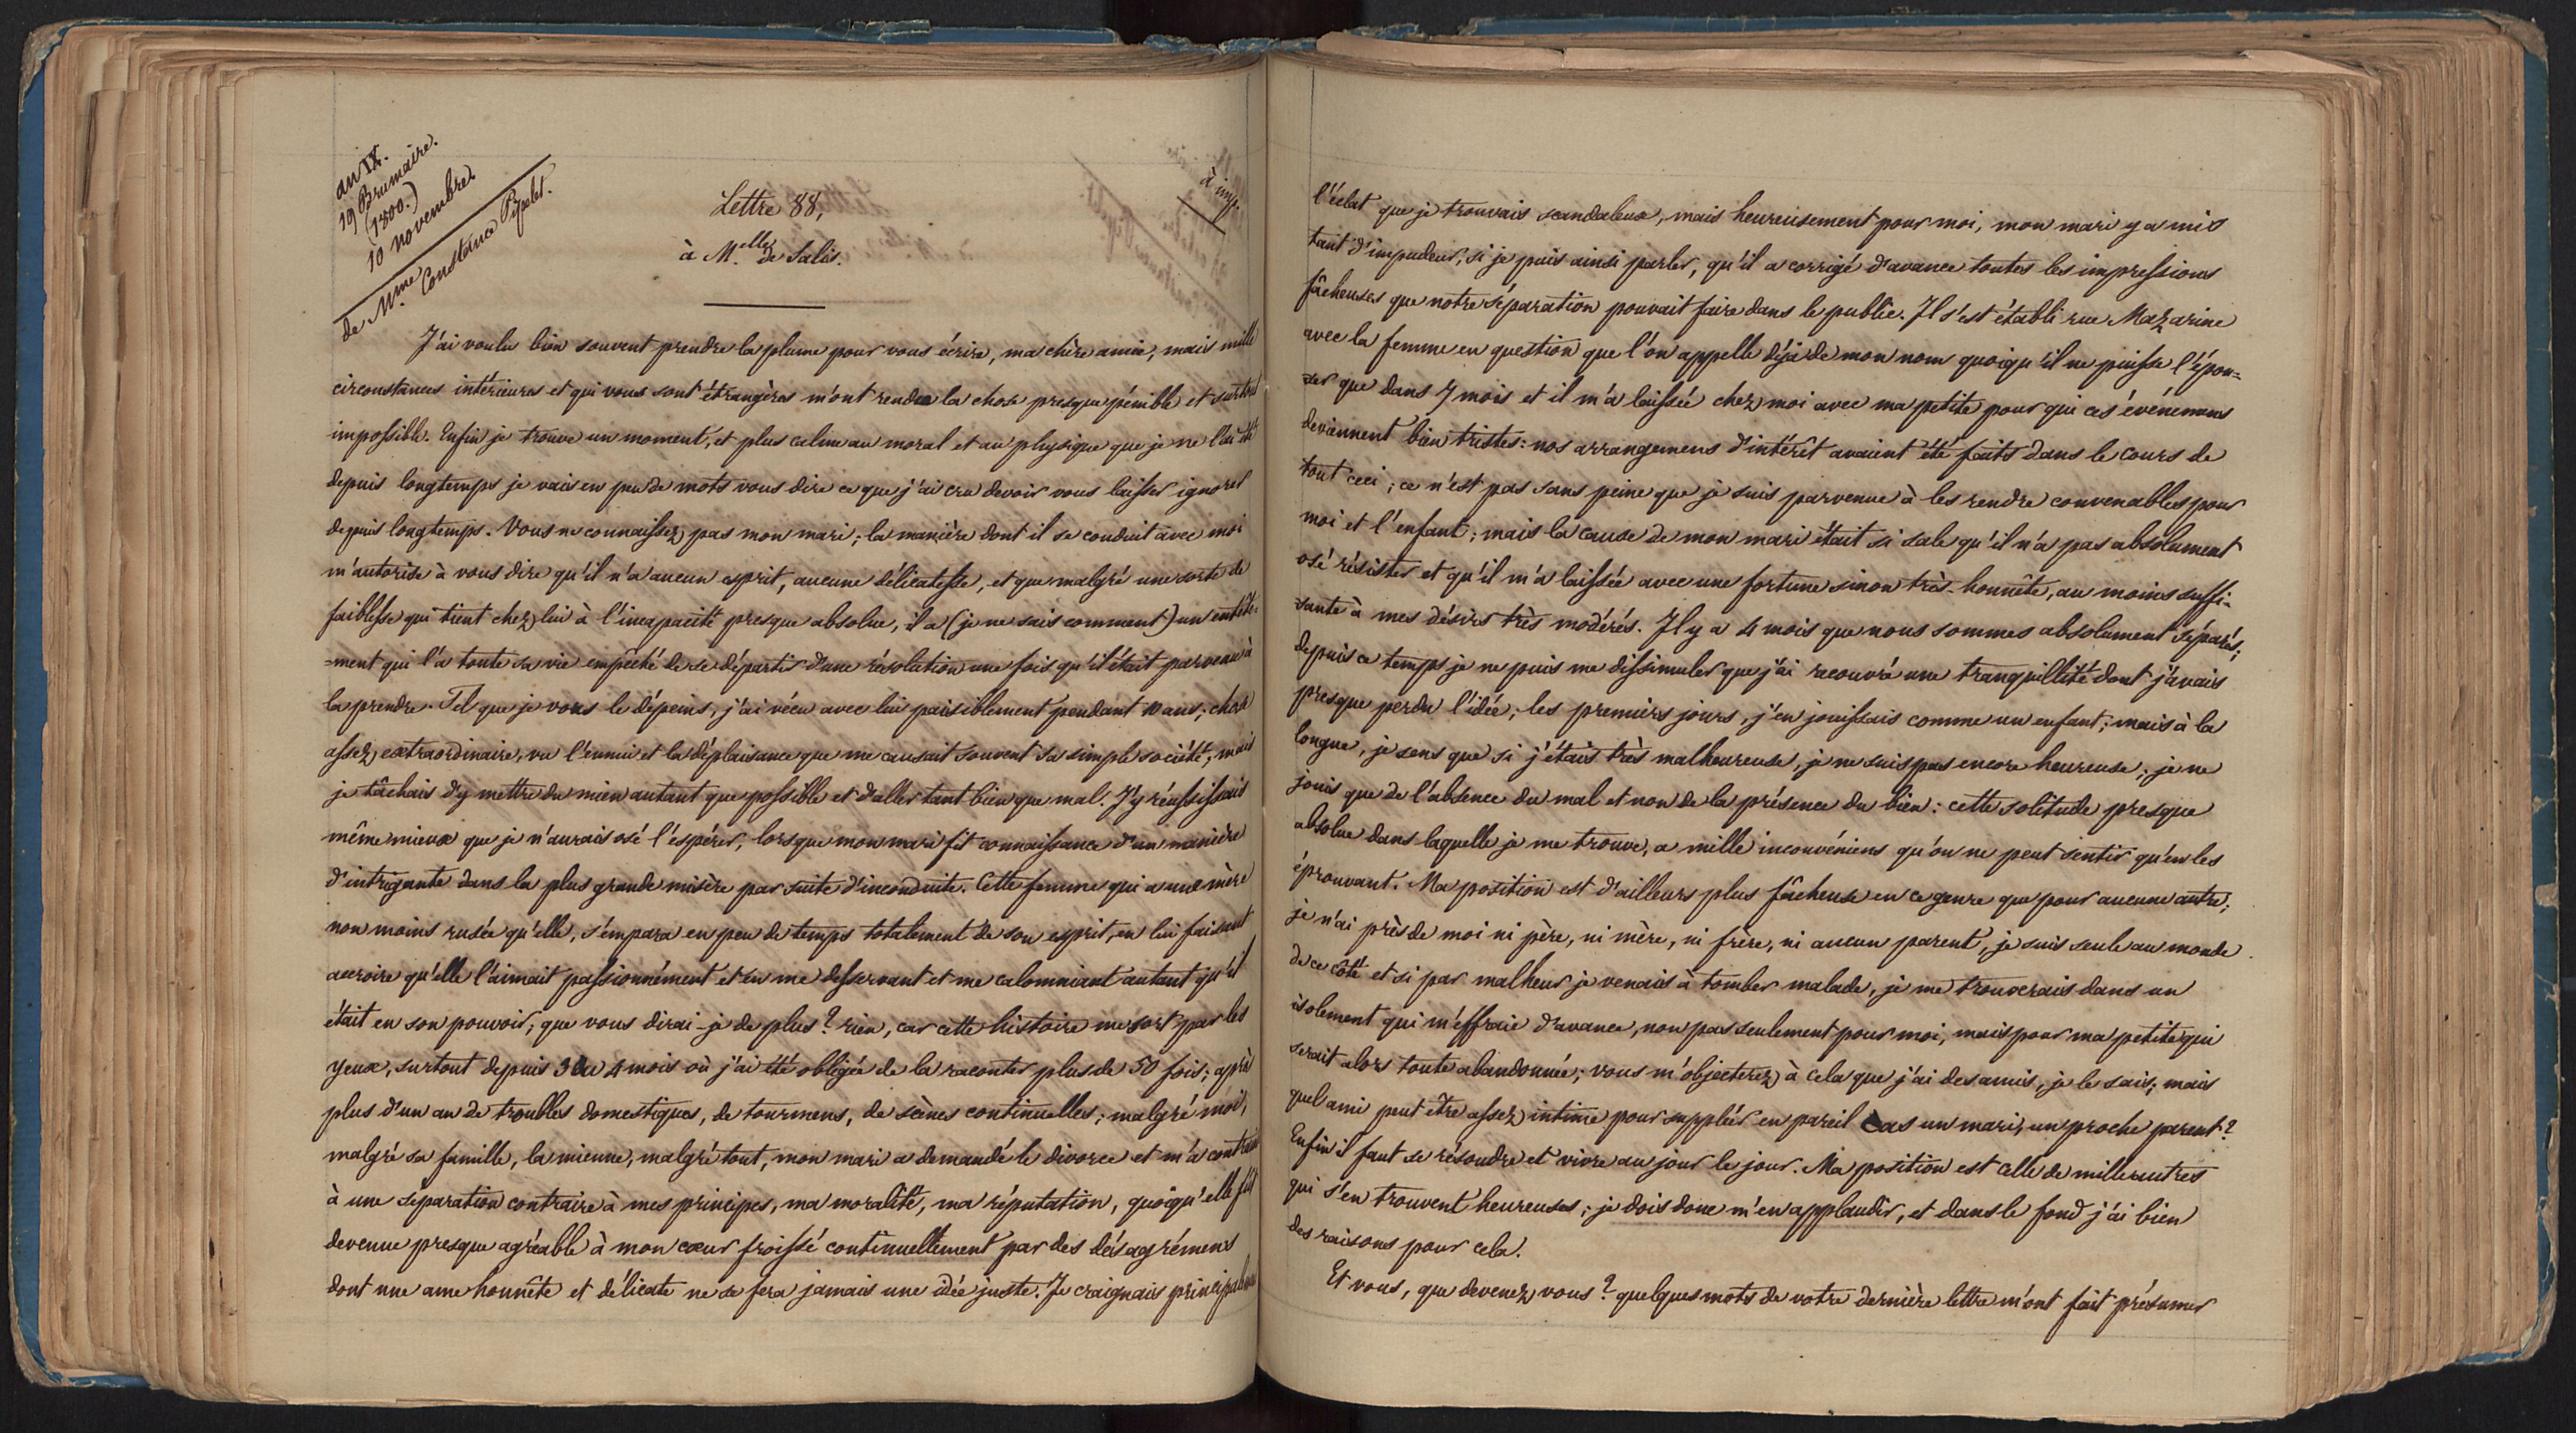 an IX.
19 Brumaire.
(1800.)
10 novembre.
de M.me Constance Pipelet.
à imp.
Lettre 88,
à M.elle de Salis.
J'ai voulu bien souvent prendre la plume pour vous écrire, ma chère amie, mais mille
circonstances intérieures et qui vous sont étrangères m'ont rendu la chose presque pénible et surtout
impossible. Enfin je trouve un moment, et plus calme au moral et au physique que je ne l'ai été
depuis longtemps je vais en peu de mots vous dire ce que j'ai cru devoir vous laisser ignorer
depuis longtemps. Vous ne connaissez pas mon mari; la manière dont il se conduit avec moi
m'autorise à vous dire qu'il n'a aucun esprit, aucune délicatesse, et que malgré une sorte de
faiblesse qui tient chez lui à l'incapacité presque absolue, il a (je ne sais comment) un entête=
=ment qui l'a toute sa vie empêché de se départir d'une résolution une fois qu'il était parvenu à
la prendre. Tel que je vous le dépeins, j'ai vécu avec lui paisiblement pendant 10 ans; chose
assez extraordinaire, vu l'ennui et la déplaisance que me causait souvent sa simple société; mais
je tâchais d'y mettre du mien autant que possible et d'aller tant bien que mal. J'y réussissais
même mieux que je n'aurais osé l'espérer, lorsque mon mari fit connaissance d'un manière
d'intrigante dans la plus grande misère par suite d'inconduite. Cette femme qui a une mère
non moins rusée qu'elle, s'empara en peu de temps totalement de son esprit, en lui faisant
accroire qu'elle l'aimait passionnément et en me desservant et me calomniant autant qu'il
était en son pouvoir; que vous dirai-je de plus? rien, car cette histoire me sort par les
yeux, surtout depuis 3 ou 4 mois où j'ai été obligée de la raconter plus de 50 fois; après
plus d'un an de troubles domestiques, de tourmens, de scènes continuelles; malgré moi,
malgré sa famille, la mienne, malgré tout, mon mari a demandé le divorce et m'a contrainte
à une séparation contraire à mes principes, ma moralité, ma réputation, quoiqu'elle fût
devenue presque agréable à mon cœur froissé continuellement par des désagrémens
dont une ame honnête et délicate ne se fera jamais une idée juste. Je craignais principalement
l'éclat que je trouvais scandaleux, mais heureusement pour moi, mon mari y a mis
tant d'impudeur, si je puis ainsi parler, qu'il a corrigé d'avance toutes les impressions
fâcheuses que notre séparation pouvait faire dans le public. Il s'est établi rue Mazarine
avec la femme en question que l'on appelle déjà de mon nom quoiqu'il ne puisse l'épou=
=ser que dans 7 mois et il m'a laissée chez moi avec ma petite pour qui ces événemens
deviennent bien tristes: nos arrangemens d'intérêt avaient été faits dans le cours de
tout ceci; ce n'est pas sans peine que je suis parvenue à les rendre convenables pour
moi et l'enfant; mais la cause de mon mari était si sale qu'il n'a pas absolument
osé résister et qu'il m'a laissée avec une fortune sinon très-honnête, au moins suffi-
sante à mes désirs très modérés. Il y a 4 mois que nous sommes absolument séparés;
depuis ce temps je ne puis me dissimuler que j'ai recouvré une tranquillité dont j'avais
presque perdu l'idée; les premiers jours, j'en jouissais comme un enfant; mais à la
longue, je sens que si j'étais très malheureuse, je ne suis pas encore heureuse; je ne
jouis que de l'absence du mal et non de la présence du bien: cette solitude presque
absolue dans laquelle je me trouve, a mille inconvéniens qu'on ne peut sentir qu'en les
éprouvant. Ma position est d'ailleurs plus fâcheuse en ce genre que pour aucune autre;
je n'ai près de moi ni père, ni mère, ni frère, ni aucun parent, je suis seule au monde
de ce côté et si par malheur je venais à tomber malade, je me trouverais dans un
isolement qui m'effraie d'avance, non pas seulement pour moi, mais pour ma petite qui
serait alors toute abandonnée; vous m'objecterez à cela que j'ai des amis, je le sais; mais
quel ami peut être assez intime pour suppléer en pareil cas un mari, un proche parent?
Enfin il faut se résoudre et vivre au jour le jour. Ma position est celle de mille autres
qui s'en trouvent heureuses; je dois donc m'en applaudir, et dans le fond j'ai bien
des raisons pour cela.
Et vous, que devenez vous? quelques mots de votre dernière lettre m'ont fait présumer